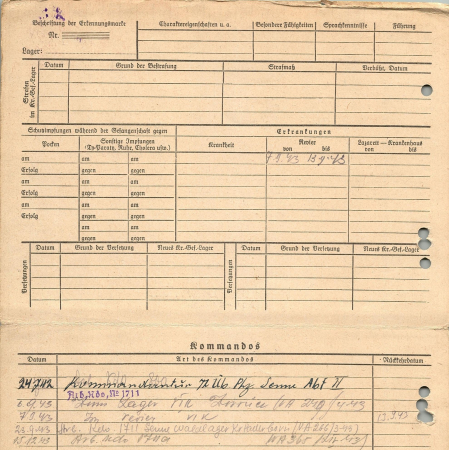 Beschriftung der Erkennungsmarke
Nr.
Lager:
Charaktereigenschaften u. a.
Besondere Fähigkeiten
Sprachkenntnisse
Führung
Strafen im Kr.-Gef.-Lager
Datum
Grund der Bestrafung
Strafmaß
Verbüßt, Datum
Schutzimpfungen während der Gefangenschaft gegen
Erkrankungen
Pocken
Sonstige Impfungen
(Ty-Paraty, Ruhr, Cholera usw.)
Krankheit
Revier
von bis
Lazarett — Krankenhaus
von bis
am am am
7.9.43 13.9.43
Erfolg gegen gegen
am am am
Erfolg gegen gegen
am am am
Erfolg gegen gegen
am am
gegen gegen
Versetzungen
Datum
Grund der Versetzung
Neues Kr.-Gef.-Lager
Versetzungen
Datum
Grund der Versetzung
Neues Kr.-Gef.-Lager
Kommandos
Datum
Art des Kommandos
Rückkehrdatum
24.7.42 Kommandantur Tr. Üb. Plz. Senne Abt. II
Arb. Kdo. Nr. 1711
Lager VI K
7.9.43 Im Revier VI K 13.9.43
23.9.43 Arb. Kdo. 1711 Senne
05.12.43 Arb. Kdo